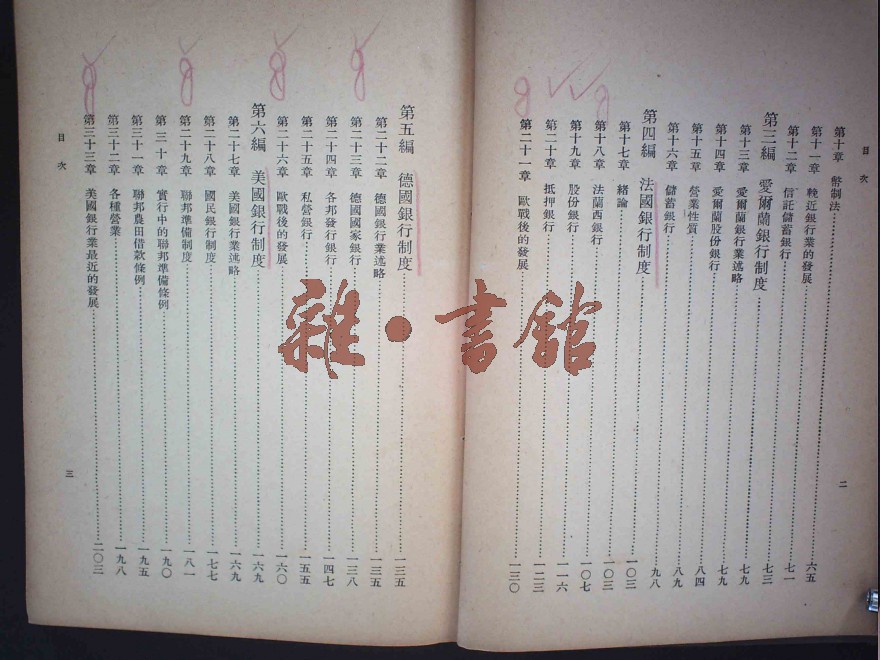 目次
第十章 幣制法 六五
第十一章 輓近銀行業的發展 七一
第十二章 信託儲蓄銀行 七三
第三編 愛爾蘭銀行制度 七九
第十三章 愛爾蘭銀行業述略 七九
第十四章 愛爾蘭股份銀行 八四
第十五章 營業性質 八九
第十六章 儲蓄銀行 九八
第四編 法國銀行制度 一〇三
第十七章 緒論 一〇三
第十八章 法蘭西銀行 一〇七
第十九章 股份銀行 一一六
第二十章 抵押銀行 一二三
第二十一章 歐戰後的發展 一三〇
二
第五編 德國銀行制度 一三五
第二十二章 德國銀行業述略 一三五
第二十三章 德國國家銀行 一三八
第二十四章 各邦發行銀行 一四七
第二十五章 私營銀行 一五五
第二十六章 歐戰後的發展 一六〇
第六編 美國銀行制度 一六九
第二十七章 美國銀行業述略 一六九
第二十八章 國民銀行制度 一七七
第二十九章 聯邦準備制度 一八一
第三十章 實行中的聯邦準備條例 一九〇
第三十一章 聯邦農田借款條例 一九五
第三十二章 各種營業 一九八
第三十三章 美國銀行業最近的發展 二〇三
目次
三
雜·書館